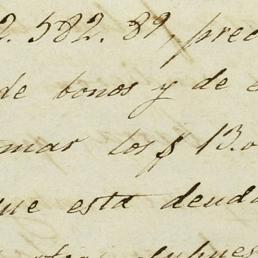 2.582.89, prec
de bonos y de e
mar los $ 13.0
ue esta deuda